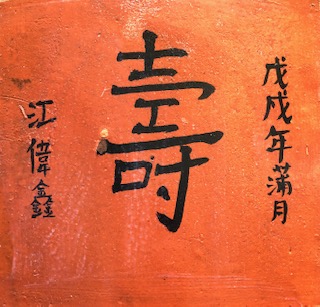 戊戌年蒲月
壽
江偉鑫